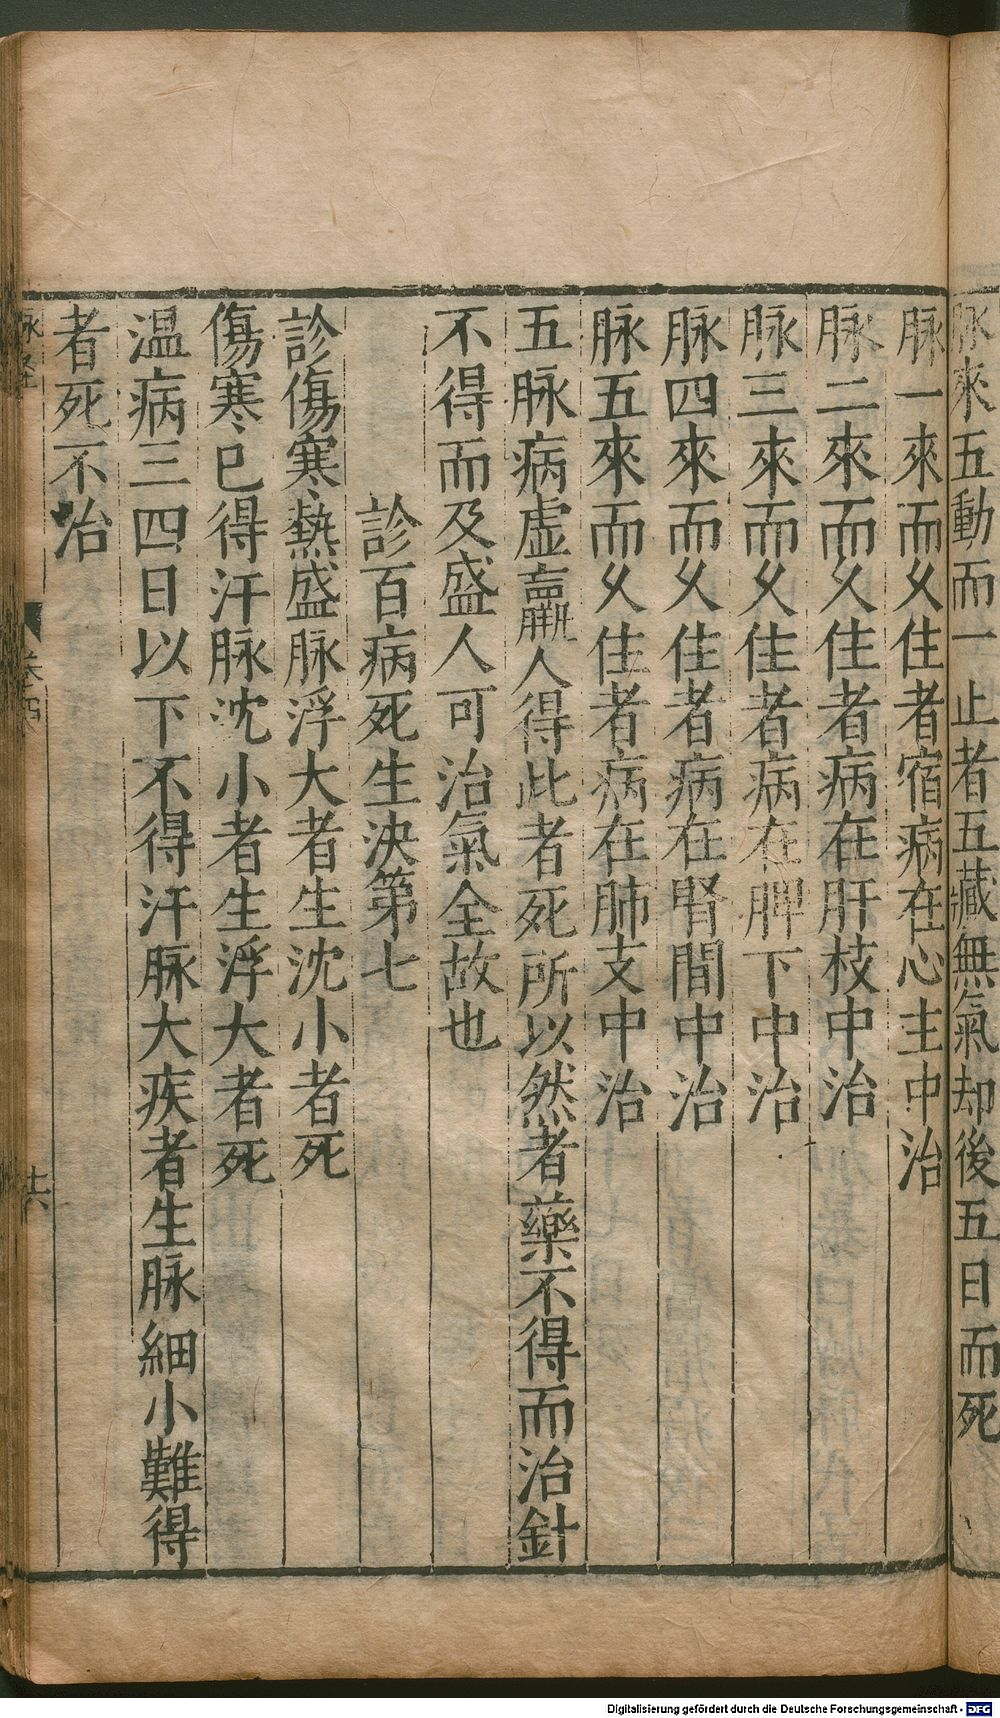 脉來五動而一止者五藏無氣却後五日而死
脉一來而乆住者宿病在心主中治
脉二來而乆住者病在肝枝中治
脉三來而乆住者病在脾下中治
脉四來而乆住者病在腎間中治
脉五來而乆住者病在肺支中治
五脉病虚羸人得此者死所以然者藥不得而治針
不得而及盛人可治氣全故也
診百病死生決第七
診傷寒熱盛脉浮大者生沈小者死
傷寒已得汗脉沈小者生浮大者死
温病三四日以下不得汗脉大疾者生脉細小難得
者死不治
脉經
卷四
十六
Digitalisierung gefördert durch die Deutsche Forschungsgemeinschaft - DFG